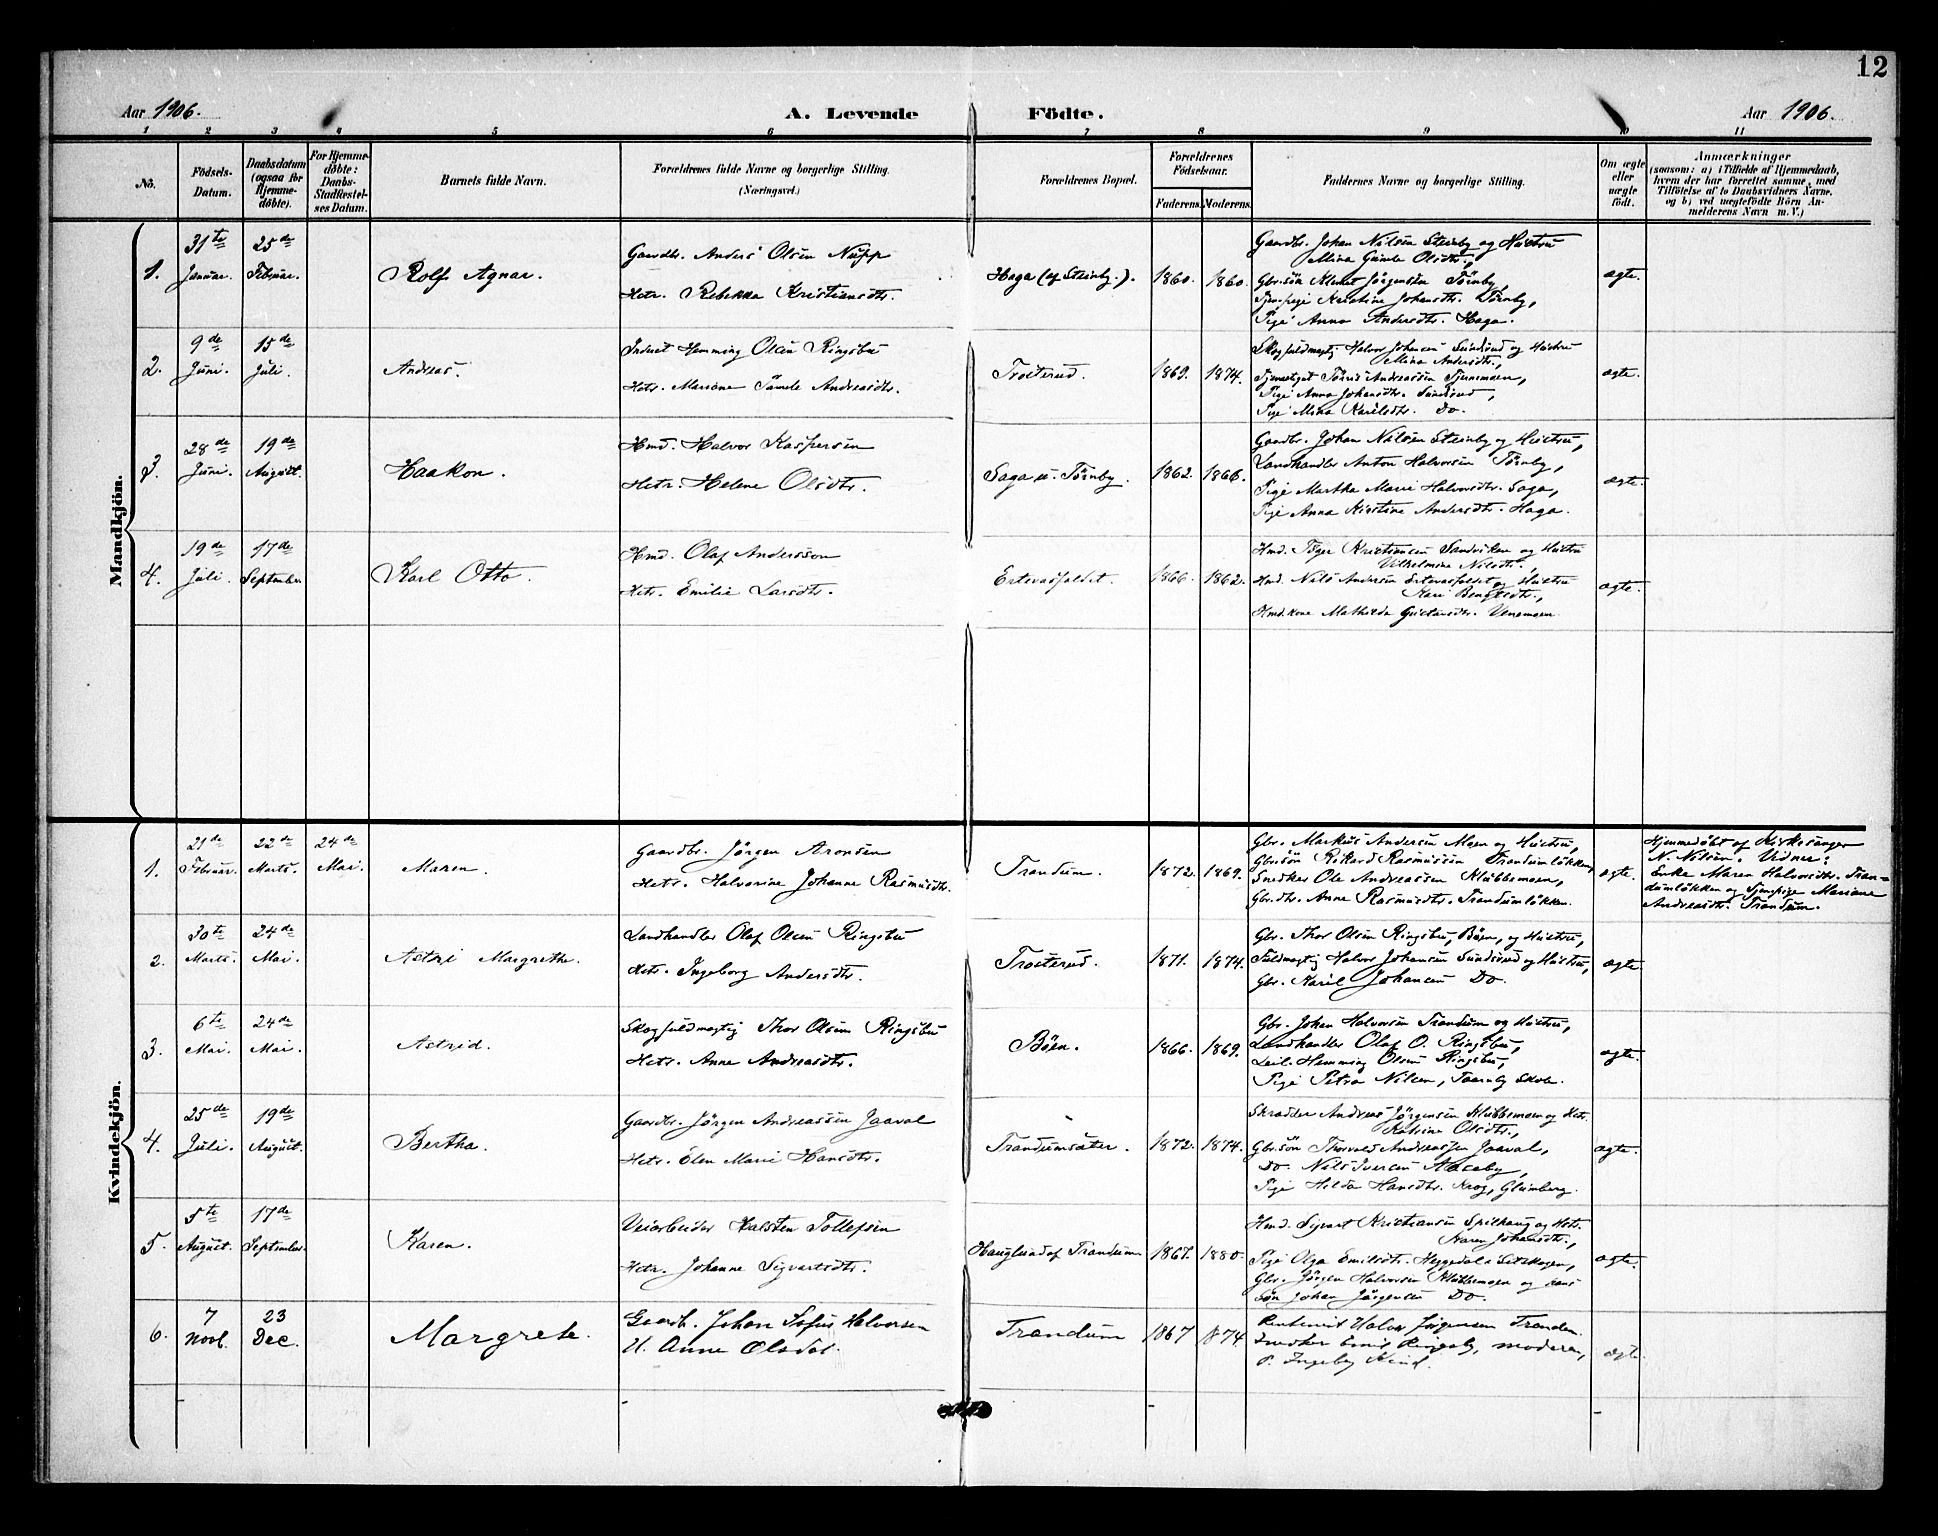 12
Aar 1906.
A. Levende Födte.
Aar 1906.
1 2 3 4 5 6 7 8 9 10 11
No.
Födsels-
Datum.
Daabsdatum
(ogsaa for
Hjemme-
döbte).
For Hjemme-
döbte:
Daabs-
Stadfæstel-
ses Datum.
Barnets fulde Navn.
Forældrenes fulde Navne og borgerlige Stilling.
(Næringsvei.)
Forældrenes Bopæl.
Forældrenes
Födselsaar.
Faderens. Moderens.
Faddernes Navne og borgerlige Stilling.
Om ægte
eller
uægte
födt.
Anmærkninger
(saasom: a) i Tilfælde af Hjemmedaab,
hvem der har forrettet samme, med
Tilföielse af to Daabsvidners Navne,
og b) ved uægtefödte Börn An-
melderens Navn m. V.)
Mandkjön.
1.
31te
Januar.
25de
Februar.
Rolf Agnar.
Gaardbr. Anders Olsen Nupp
Hstr. Rebekka Kristiansdtr.
Haga (af Steinby.).
1860. 1860.
Gaardbr. Johan Nilsen Steinby og Hustru
Mina Gunde Olsdtr.,
Gbr.sön Jörgensen Törnby,
Tjen.pige Kristine Johansdtr. Törnby,
Pige Anna Andersdtr. Haga.
ægte.
2.
9de
Juni.
15de
Juli.
Andreas.
Inderst Hemming Olsen Ringsbu
Hstr. Mariane Andreasdtr.
Trosterud.
1869. 1874.
Skogfuldmægtig Halvor Johansen Sundsrud og Hustru
Mina Andersdtr.,
Andreassen Tjernmoen,
Pige Anna Johansdtr. Sundsrud,
Pige Mina Karlsdtr. Do.
ægte.
3.
28de
Juni.
19de
August.
Haakon.
Hmd. Halvor Kaspersen
Hstr. Helene Olsdtr.
Saga u. Törnby.
1862. 1866.
Gaardbr. Johan Nilsen Steinby og Hustru,
Landhandler Anton Halvorsen Törnby,
Pige Martha Marie Halvorsdtr. Saga,
Pige Anna Kirstine Andersdtr. Haga.
ægte.
4.
19de
Juli.
17de
September
Karl Otto.
Hmd. Olaf Andersson
Hstr. Emilie Larsdtr.
Ertevasfaldet.
1866. 1862.
Hmd. Kristiansen Sandviken og Hustru
Vilhelmine Nilsdtr.,
Hmd. Nils Andersen Ertevasfaldet og Hustru
Kari Bengtsdtr.,
Hmd.kone Mathilda Gustavsdtr. Venemoen
ægte.
Kvindekjön.
1.
21de
Februar.
22de
Marts.
24de
Mai.
Maren.
Gaardbr. Jörgen Aronsen
Hstr. Halvorine Johanne Rasmusdtr.
Trandum.
1872. 1869.
Gbr. Markus Andersen Moen og Hustru,
Gbr.sön Rikard Rasmussen Trandumlökken,
Snedker Ole Andreassen Klubbemoen,
Gbr.dtr. Anne Rasmusdtr. Trandumlökken.
ægte.
Hjemmedöbt af Kirkesanger
N. Nilsen. Vidner:
Enke Maren Halvorsdtr. Tran=
dumlökken og Tjen.pige Mariane
Andreasdtr. Trandum.
2.
30te
Marts.
24de
Mai.
Astri Margrethe.
Landhandler Olaf Olsen Ringsbu
Hstr. Ingeborg Andersdtr.
Trosterud.
1871. 1874.
Gbr. Thor Olsen Ringsbu, Böen, og Hustru,
Fuldmægtig Halvor Johansen Sundsrud og Hustru,
Gbr. Karl Johansen Do.
ægte.
3.
6te
Mai.
24de
Mai.
Astrid.
Skogfuldmægtig Thor Olsen Ringsbu
Hstr. Anne Andreasdtr.
Böen.
1866. 1869.
Gbr. Johan Halvorsen Trandum og Hustru,
Landhandler Olaf O. Ringsbu,
Leil. Hemming Olsen Ringsbu,
Pige Petra Nilsen, Taarnby Skole.
ægte.
4.
25de
Juli.
19de
August.
Bertha.
Gaardbr. Jörgen Andreassen Jaaval
Hstr. Elen Marie Hansdtr.
Trandumsæter.
1872. 1874.
Skrædder Andreas Jörgensen Klubbemoen og Hstr.
Katrine Olsdtr.,
Gbr.sön Thorvald Andreassen Jaaval,
Do. Nils Iversen
Pige Hilda Hansdtr. Krog, Glimberg.
ægte.
5.
5te
August.
17de
September.
Karen.
Veiarbeider Karsten Tollefsen
Hstr. Johanne Sigvartsdtr.
Hauglund af Trandum
1867. 1880.
Hmd. Sigvart Kristiansen Spithaug og Hstr.
Karen Johansdtr.,
Pige Olga Emilsdtr. Heggedal i Setskogen,
Gbr. Jörgen Halvorsen Klubbemoen og hans
Sön Johan Jörgensen Do.
ægte.
6.
7
Novb.
23
Dec.
Margrete.
Gaardb. Johan Sofus Halvorsen
H. Anne Olsdat.
Trandum
1867 1874.
Halvor Jörgensen Tranden.
Snedker Emil moderen,
P. Ingeborg
ægte.